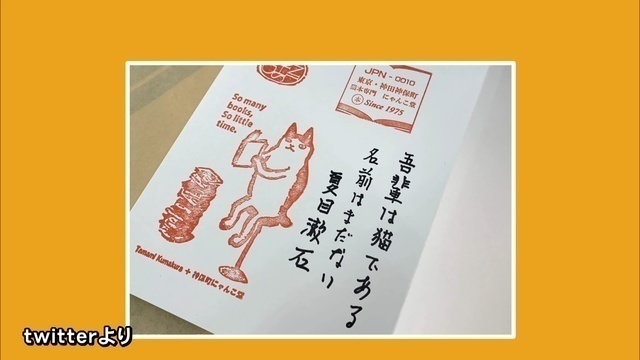 JPN-0010
東京・神田神保町
猫本専門 にゃんこ堂
Since 1975
So many
books,
So little
time.
吾輩は猫である
名前はまだない
夏目漱石
Tamami Kumakura + 神保町にゃんこ堂
twitterより